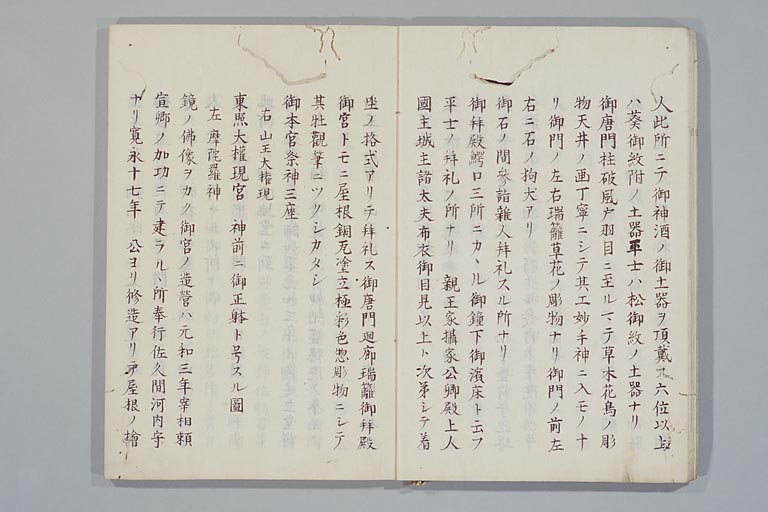 人此所ニテ御神酒ノ御土器ヲ頂戴ス六位以上
ハ葵御紋附ノ土器平士ハ松御紋ノ土器ナリ
御唐門柱破風戸羽目ニ至ルマテ草木花鳥ノ彫
物天井ノ画丁寧ニシテ其工妙手神ニ入モノナ
リ御門ノ左右瑞籬草花ノ彫物ナリ御門ノ前左
右ニ石ノ拘犬アリ
御石ノ間参詣雜人拜礼スル所ナリ
御拜殿鰐口三所ニカヽル御鐘下御濱床ト云フ
平士ノ拜礼ノ所ナリ 親王家攝家公卿殿上人
國主城主諸太夫布衣御目見以上ト次第シテ着
坐ノ格式アリテ拜礼ス御唐門廻廊瑞籬御拜殿
御宮トモニ屋根銅瓦塗立極彩色惣彫物ニシテ
其壮觀筆ニツクシカタシ
御本宮祭神三座
右 山王大権現
東照大權現宮 神前ニ御正躰ト号スル圖
左 摩陀羅神
鏡ノ佛像ヲカク御宮ノ造營ハ元和三年宰相頼
宣卿ノ加功ニテ建ラルヽ所奉行佐久間河内守
ナリ寛永十七年 公ヨリ修造アリテ屋根ノ檜